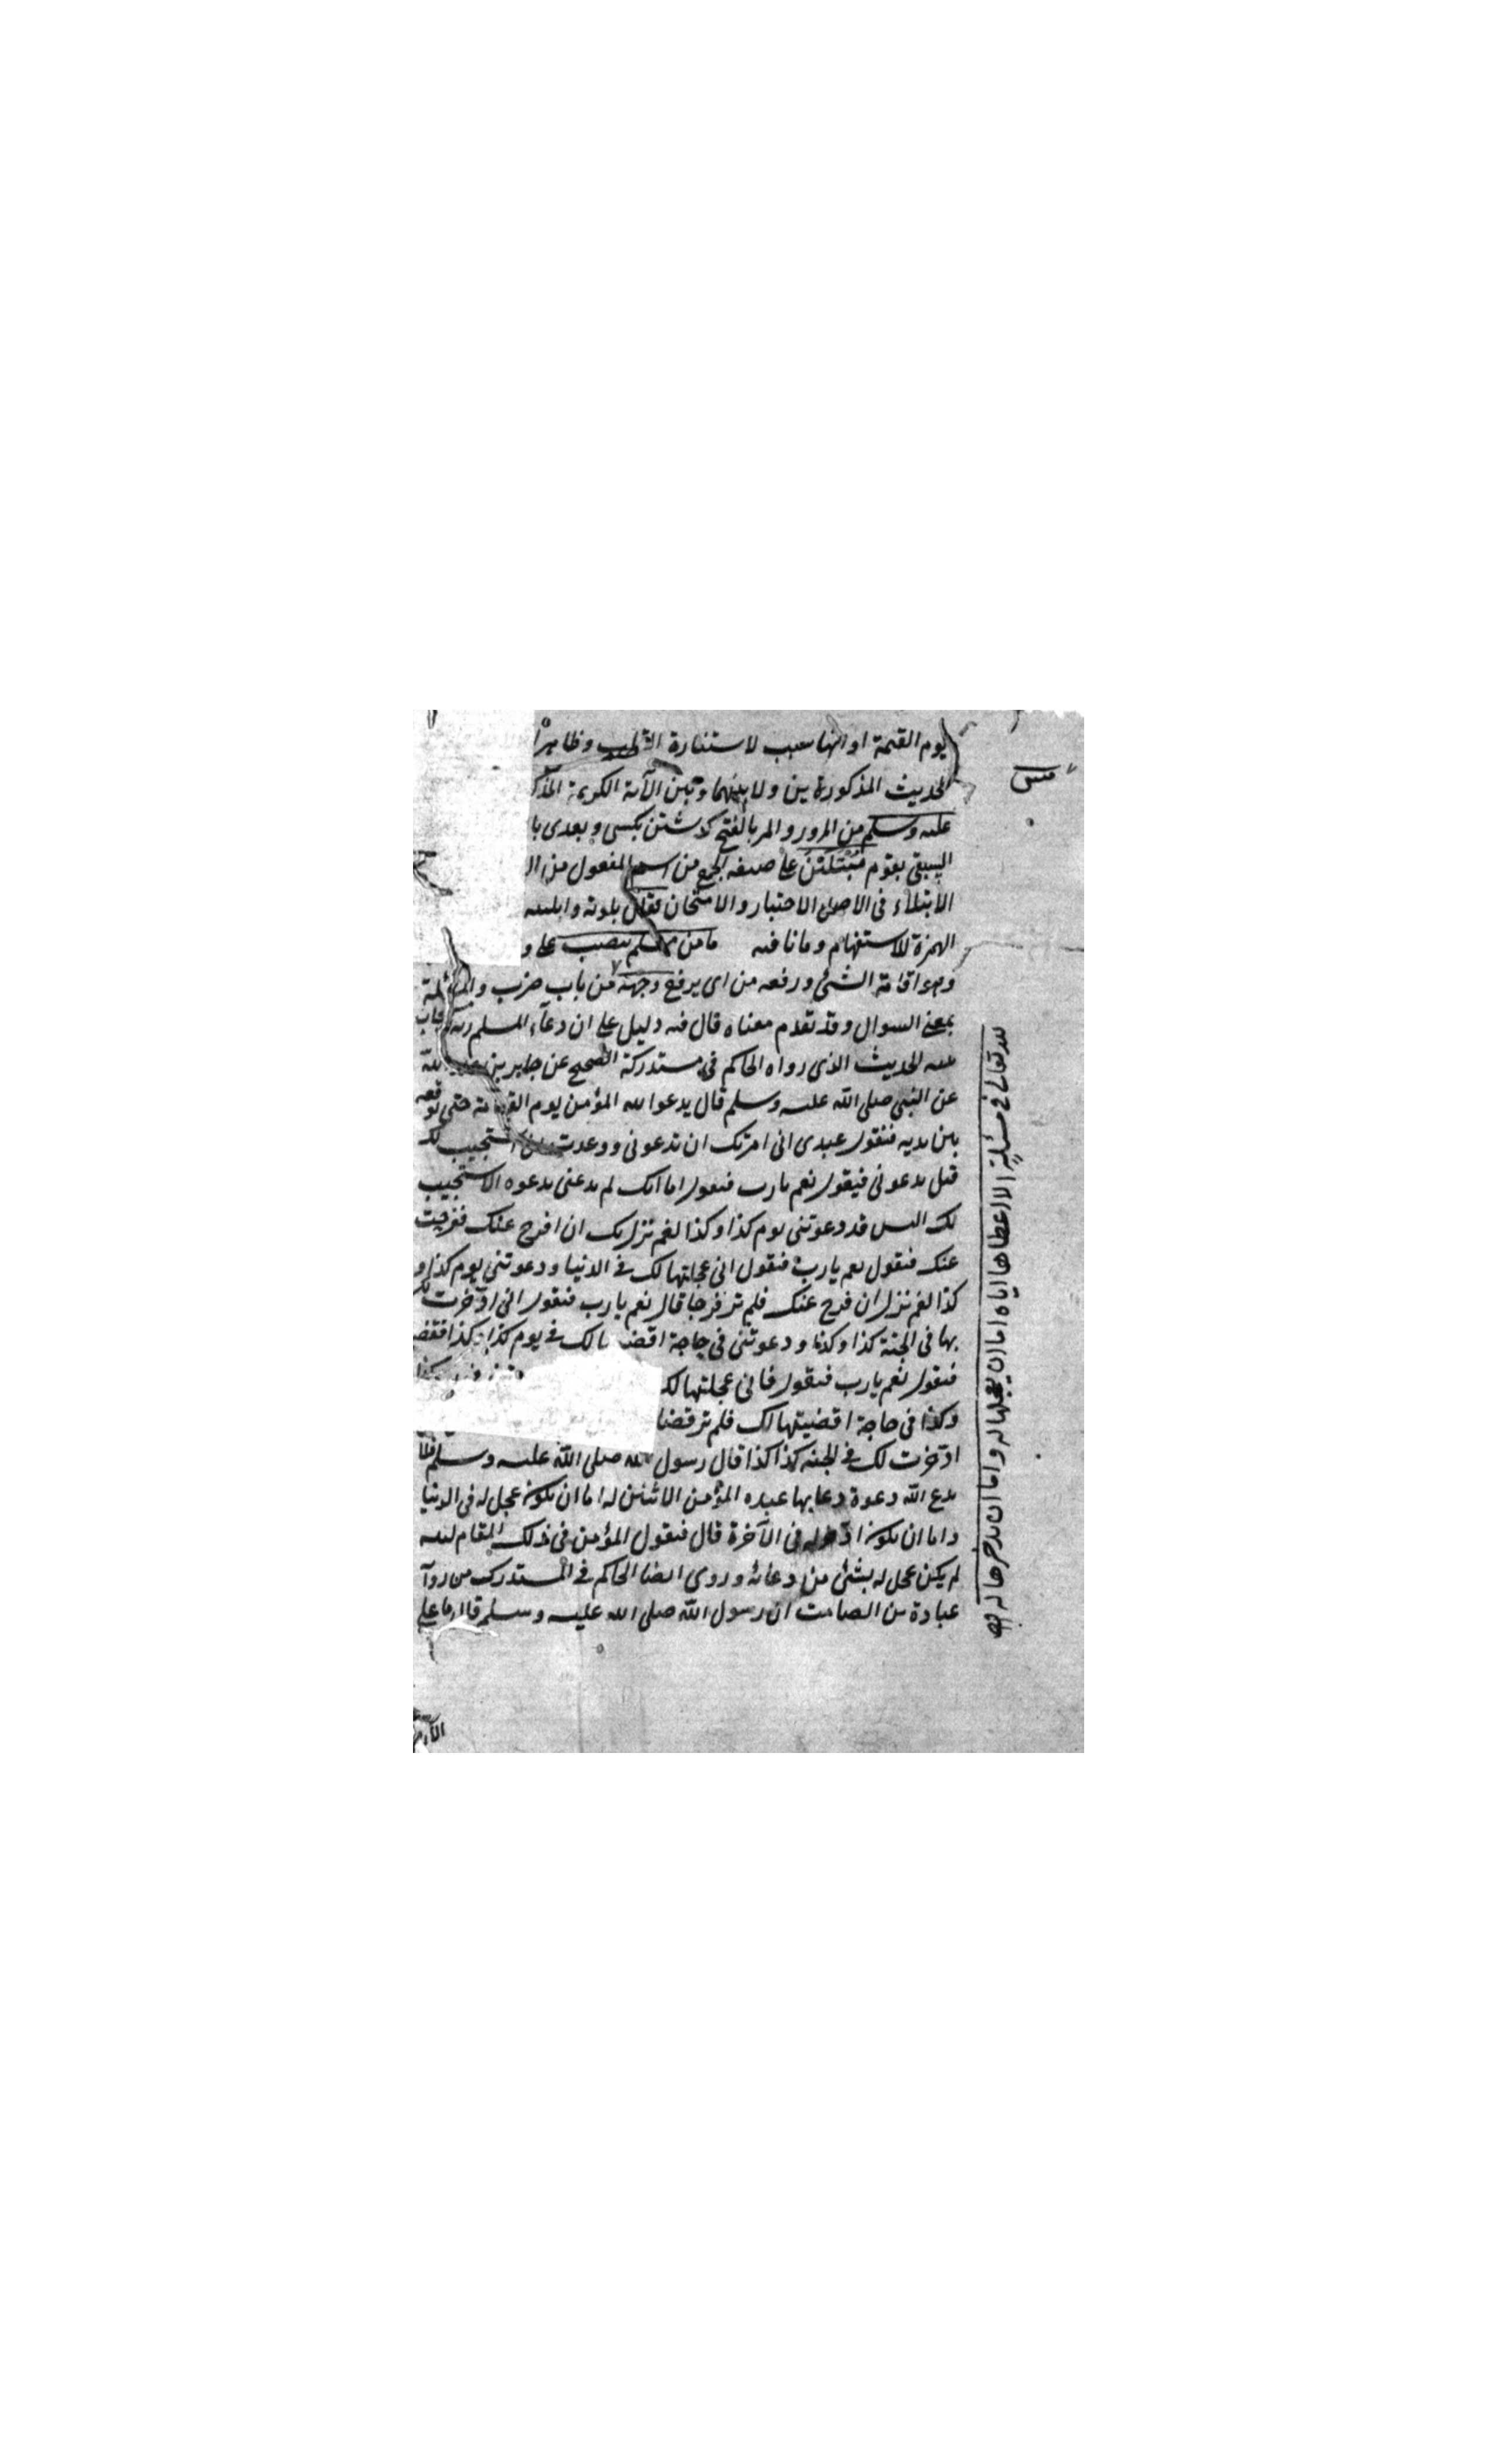 يوم القيمة او انها سبب لاستنارة القلب وظاهرا
الحديث المذكورة بين ولا بينهما وبين الآية الكريمة المذك
عليه وسلم من المرور والمر بالفتح كذشتن بكسى وبعدى با
البيهقى بقوم مُبْتَلَيْنَ على صيغه الجمع من اسم المفعول من ال
الابتلاء فى الاصل الاختبار والامتحان يقال بلوته وابليته
الهمزة للاستفهام وما نافيه ما من مسلم ينصب على و
وهو اقامة الشئ ورفعه من اى يرفع وجهه من باب ضرب والمسئلة
بمعنى السوال وقد تقدم معناه قال فيه دليل على ان دعآء المسلم
الحديث الذى رواه الحاكم فى مستدركه الصحيح عن جابر بن عبد الله
عن النبى صلى الله عليه وسلم قال يدعوا الله المؤمن يوم القيامة حتى يوقفه
بين يديه فيقول عبدى انى امرتك ان تدعونى ووعدتك ان استجيب لك
فهل تدعونى فيقول نعم يارب فيقول اما انك لم تدعنى بدعوه الا استجيب
لك اليس قد دعوتنى يوم كذا وكذا لغم نزل بك ان افرج عنك ففرجت
عنك فيقول نعم يارب فيقول انى عجلتها لك فى الدنيا ودعوتنى يوم كذا و
كذا لغم نزل ان فرج عنك فلم تر فرجا قال نعم يارب فيقول انى ادّخرت لك
بها فى الجنة كذا وكذا ودعوتنى فى حاجة اقضيها لك فى يوم كذا وكذا فقض
فيقول نعم يارب فيقول فانى عجلتها لك
وكذا فى حاجة اقضيتها لك فلم تر قضا
ادّخرت لك فى الجنه كذا كذا قال رسول الله صلى الله عليه وسلم فلا
يدع الله دعوة دعا بها عبده المؤمن الا بيّن له اما ان يكون عجل له فى الدنيا
واما ان يكون ادّخر له فى الآخرة قال فيقول المؤمن فى ذلك المقام ليته
لم يكن عجل له بشئ من دعائه وروى ايضا الحاكم فى المستدرك من روآ
عبادة بن الصامت ان رسول الله صلى الله عليه وسلم قال ما على
لله تعالى فى مسئلة الا اعطاها اياه اما ان يعجلها له واما ان يدخرها له